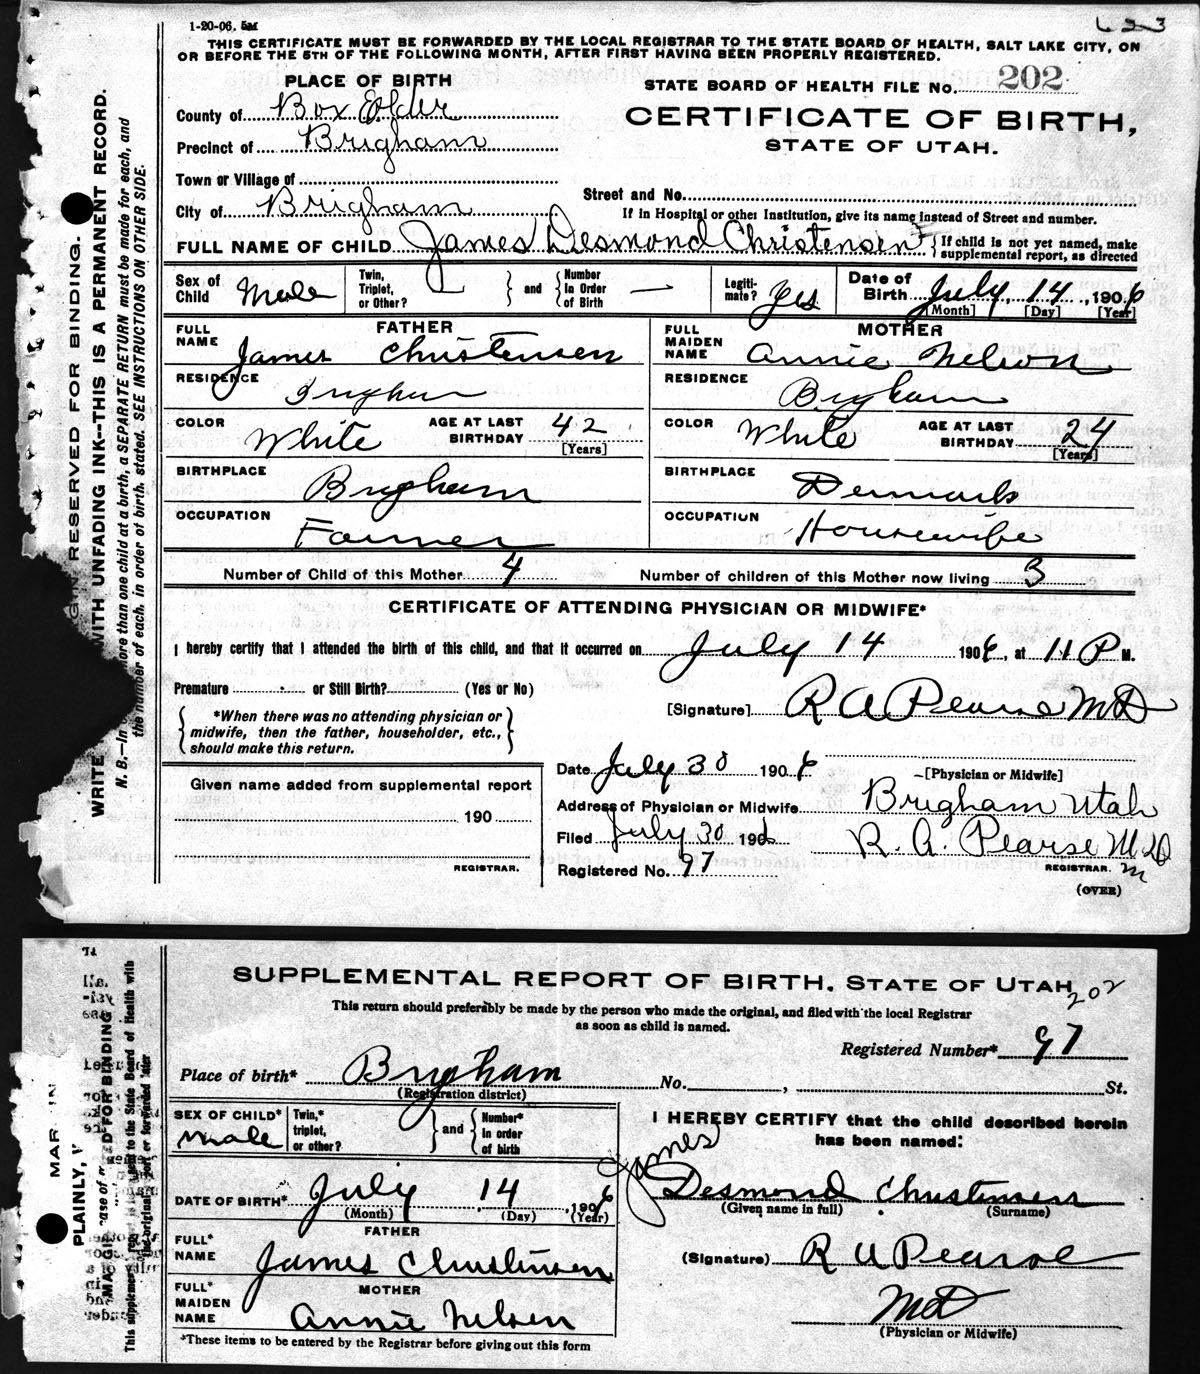 1-20-06. 5M
623
THIS CERTIFICATE MUST BE FORWARDED BY THE LOCAL REGISTRAR TO THE STATE BOARD OF HEALTH, SALT LAKE CITY, ON
OR BEFORE THE 5TH OF THE FOLLOWING MONTH, AFTER FIRST HAVING BEEN PROPERLY REGISTERED.
PLACE OF BIRTH
STATE BOARD OF HEALTH FILE No. 202
County of Box Elder
CERTIFICATE OF BIRTH,
Precinct of Brigham
STATE OF UTAH.
Town or Village of
Street and No.
City of Brigham
If in Hospital or other Institution, give its name instead of Street and number.
FULL NAME OF CHILD James Desmond Christensen { If child is not yet named, make
supplemental report, as directed
Sex of Child Male Twin, Triplet, or Other? } and { Number in Order of Birth — Legiti-mate? Yes Date of Birth July, 14, 1906
[Month] [Day] [Year]
FATHER
MOTHER
FULL NAME James Christensen
FULL MAIDEN NAME Annie Nelson
RESIDENCE Brigham
RESIDENCE Brigham
COLOR White AGE AT LAST BIRTHDAY 42 [Years]
COLOR White AGE AT LAST BIRTHDAY 24 [Years]
BIRTHPLACE Brigham
BIRTHPLACE Denmark
OCCUPATION Farmer
OCCUPATION Housewife
Number of Child of this Mother 4 Number of children of this Mother now living 3
CERTIFICATE OF ATTENDING PHYSICIAN OR MIDWIFE*
I hereby certify that I attended the birth of this child, and that it occurred on July 14 1906, at 11 P M.
Premature or Still Birth? (Yes or No)
[Signature] R A Pearse MD
{ *When there was no attending physician or
midwife, then the father, householder, etc.,
should make this return. }
Date July 30 1906
[Physician or Midwife]
Given name added from supplemental report
Address of Physician or Midwife Brigham Utah
190
Filed July 30 1906 R. A. Pearse M D
REGISTRAR.
Registered No. 97
REGISTRAR.
(OVER)
RESERVED FOR BINDING.
WRITE WITH UNFADING INK--THIS IS A PERMANENT RECORD.
N. B.—In more than one child at a birth, a SEPARATE RETURN must be made for each, and
the number of each, in order of birth, stated. SEE INSTRUCTIONS ON OTHER SIDE.
SUPPLEMENTAL REPORT OF BIRTH. STATE OF UTAH
202
This return should preferably be made by the person who made the original, and filed with the local Registrar
as soon as child is named.
Registered Number* 97
Place of birth* Brigham No. , St.
(Registration district)
SEX OF CHILD* Male Twin,* triplet, or other? } and { Number* in order of birth
I HEREBY CERTIFY that the child described herein
has been named:
James
DATE OF BIRTH* July 14, 1906
(Month) (Day) (Year)
Desmond Christensen
(Given name in full) (Surname)
FATHER
FULL* NAME James Christensen
(Signature) R A Pearse
MOTHER
FULL* MAIDEN NAME Annie Nelsen
MD
(Physician or Midwife)
*These items to be entered by the Registrar before giving out this form